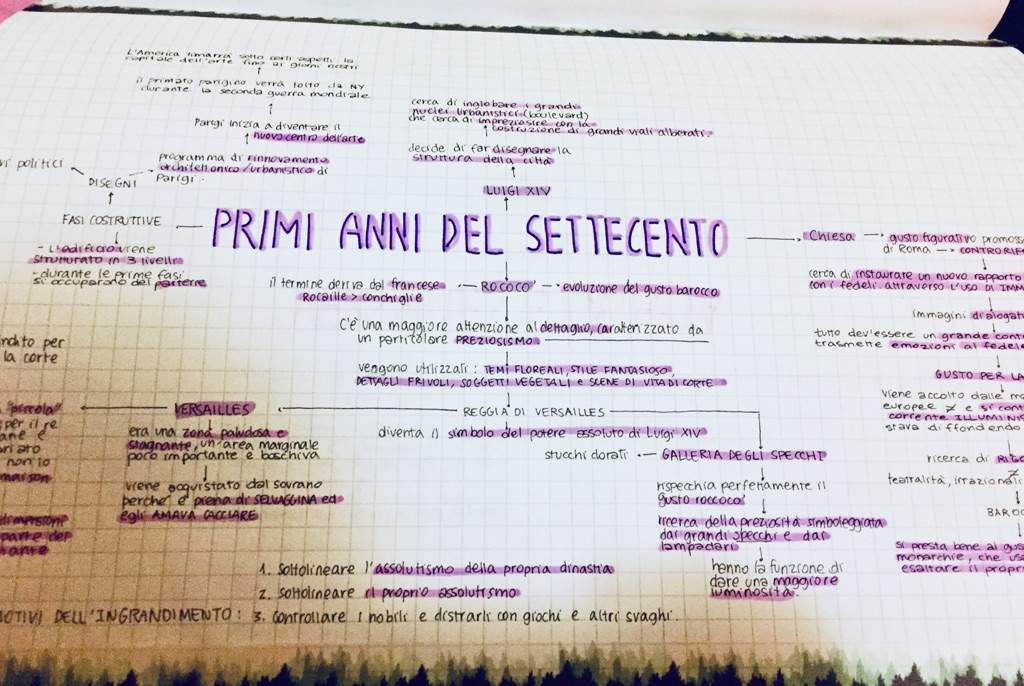 L'America rimarrà sotto certi aspetti la
capitale dell'arte fino ai giorni nostri
il primato parigino verrà tolto da NY
durante la seconda guerra mondiale
Parigi inizia a diventare il
nuovo centro dell'arte
programma di rinnovamento
architettonico/urbanistico di
Parigi.
politici
DISEGNI
FASI COSTRUTTIVE
- L'edificio viene
strutturato in 3 livelli
- durante le prime fasi
si occuparono del parterre
cerca di inglobare i grandi
nuclei urbanistici (boulevard)
che cerca di impreziosire con la
costruzione di grandi viali alberati.
decide di far disegnare la
struttura della città
LUIGI XIV
PRIMI ANNI DEL SETTECENTO
Chiesa
gusto figurativo promoss
di Roma → CONTRORIF
cerca di instaurare un nuovo rapporto
con i fedeli attraverso l'USO DI IMM
immagini dialogat
tutto dev'essere un grande cont
trasmette emozioni al fedele
GUSTO PER LA
viene accolto dalle mo
europee ≠ e si cont
corrente ILLUMINIS
stava diffondendo
ricerca di
≠
teatralità, irrazionali
BAROC
si presta bene al gus
monarchie, che usa
esaltare il propri
il termine deriva dal francese
Rocaille > conchiglie
ROCOCO'
evoluzione del gusto barocco
C'è una maggiore attenzione al dettaglio, caratterizzato da
un particolare PREZIOSISMO
vengono utilizzati: TEMI FLOREALI, STILE FANTASIOSO,
DETTAGLI FRIVOLI, SOGGETTI VEGETALI e SCENE DI VITA DI CORTE
REGGIA DI VERSAILLES
diventa il simbolo del potere assoluto di Luigi XIV
VERSAILLES
era una zona paludosa e
stagnante, un'area marginale
poco importante e boschiva
viene acquistato dal sovrano
perché è piena di SELVAGGINA ed
egli AMAVA CACCIARE
ndito per
la corte
"piccola"
per il re
ane e
ariato
non io
maison
dimensioni
parte del
stucchi dorati
GALLERIA DEGLI SPECCHI
rispecchia perfettamente il
gusto roccocò
ricerca della preziosità simboleggiata
dai grandi specchi e dai
lampadari
hanno la funzione di
dare una maggiore
luminosità.
1. Sottolineare l'assolutismo della propria dinastia
2. sottolineare il proprio assolutismo
MOTIVI DELL'INGRANDIMENTO: 3. controllare i nobili e distrarli con giochi e altri svaghi.